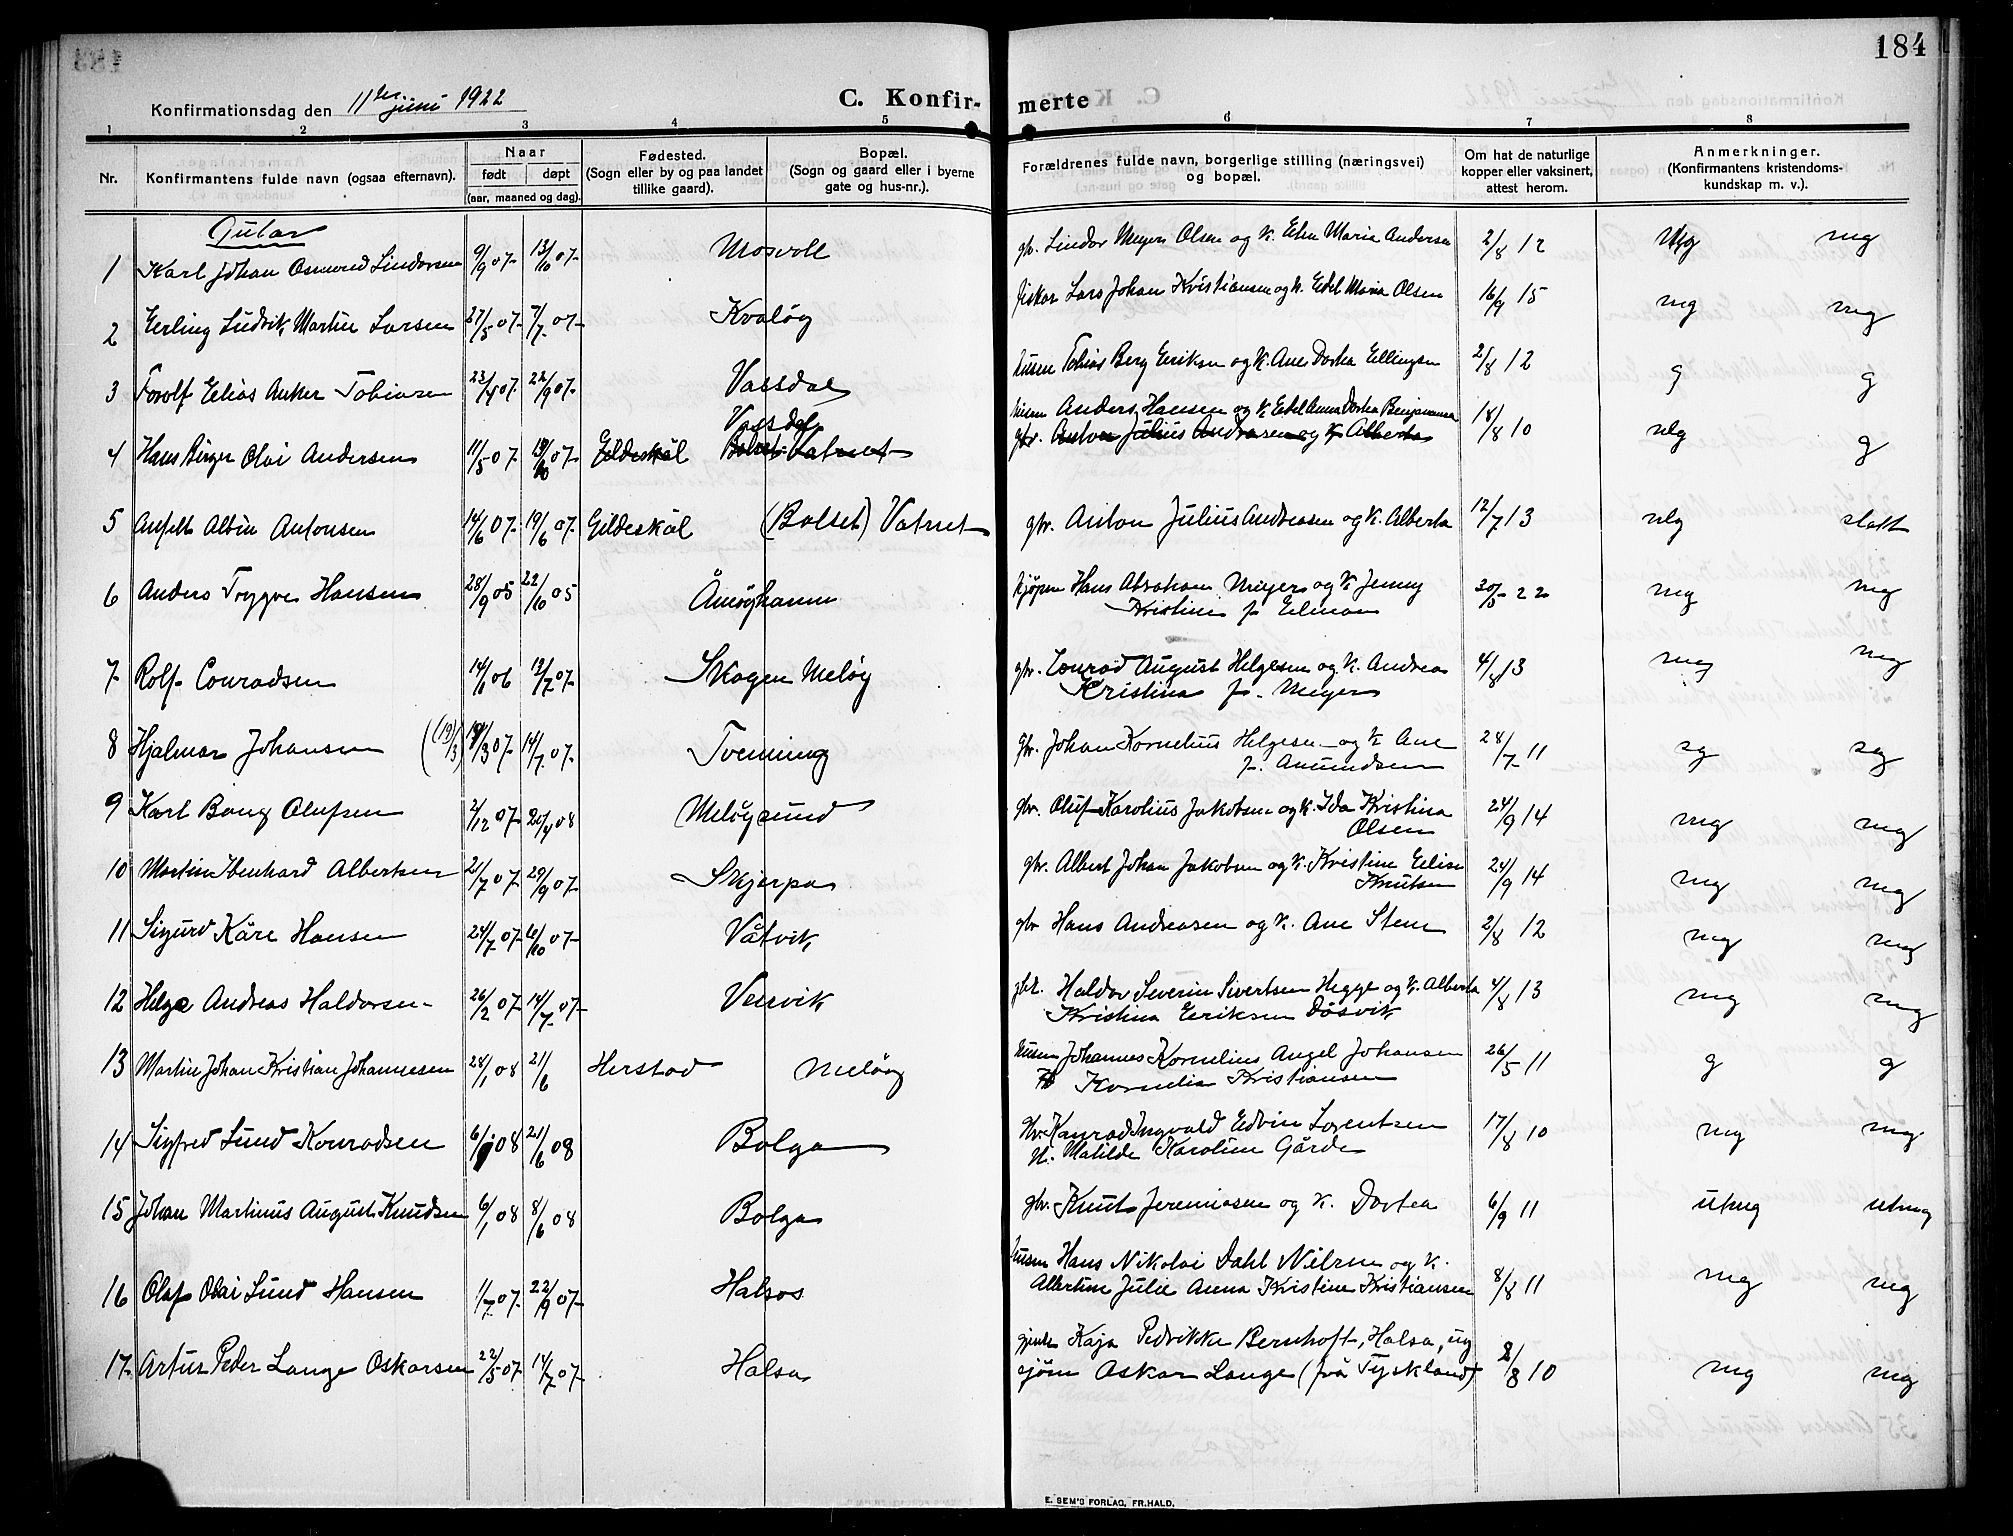 184
Konfirmationsdag den 11te juni 1922
C. Konfir- merte
1 2 3 4 5 6 7 8
Nr.
Konfirmantens fulde navn (ogsaa efternavn).
Naar
født døpt
(aar, maaned og dag).
Fødested.
(Sogn eller by og paa landet
tillike gaard).
Bopæl.
(Sogn og gaard eller i byerne
gate og hus-nr.).
Forældrenes fulde navn, borgerlige stilling (næringsvei)
og bopæl.
Om hat de naturlige
kopper eller vaksinert,
attest herom.
Anmerkninger.
(Konfirmantens kristendoms-
kundskap m. v.).
Gutar
1 Karl Johan Osmund Lindorsen 9/9 07- 13/10 07- Mosvoll gbr. Lindor Meyer Olsen og k. Elen Marie Andersen 2/8 12 mg mg
2 Erling Ludvik Martin Larsen 27/5 07- 7/7 07- Kvaløy fiskar Lars Johan Kristiansen og k. Edel Maria Olsen 16/9 15 mg mg
3 Torolf Elias Anker Tobiasen 23/4 07- 22/9 07- Vassdal Tobias Berg Eriksen og k. Ane Dortea Ellingsen 2/8 12 g g
Vassdal Anders Hansen og k. Edel Anna Dortea Benjaminsen
4 Hans Birger Olai Andersen 11/5 07- 13/10 07- Gildeskål Bolset Vatnet gbr. Anton Julius Andreasen og k. Alberta 18/8 10 mg g
5 Anfelt Albin Antonsen 14/6 07- 19/6 07- Gildeskål (Bolset) Vatnet gbr. Anton Julius Andreasen og k. Alberta 12/7 13 mg slett
6 Anders Trygve Hansen 28/9 05 22/10 05 Åmøyhamn kjøpm Hans Abraham Meyer og k. Jenny 30/5 22 mg mg
Kristine f. Edman
7- Rolf Conradsen 14/6 06 13/7 07- Skogen Meløy gbr. Conrad August Helgesen og k. Andrea 4/8 13 mg mg
Kristina f. Meyer
8 Hjalmar Johansen (19/3) 19/3 07- 14/7 07- Tvenning gbr. Johan Kornelius Helgesen og k. Ane 28/7 11 sg sg
f. Amundsen
9 Karl Bang Olufsen 2/12 07- 20/4 08 Meløysund gbr. Oluf Karolius Jakobsen og k. Ida Kristina 24/9 14 mg mg
Olsen
10 Martin Ibenhard Albertsen 2/7 07- 29/9 07- Skjerpa gbr. Albert Johan Jakobsen og k. Kristine Elise 24/9 14 mg mg
Knutsen
11 Sigurd Kåre Hansen 24/7 07- 6/10 07- Våtvik gbr Hans Andreasen og k. Ane Sten 2/8 12 mg mg
12 Helge Andreas Haldorsen 26/2 07- 14/7 07- Vensvik gbr. Haldor Severin Sivertsen Hegge og k. Alberta 4/8 13 mg mg
Kristina Eriksen Dåsvik
13 Martin Johan Kristian Johannesen 24/1 08 21/6 Herstad Meløy Johannes Kornelius Angel Johansen 26/5 11 g g
Kornelia Kristiansen
14 Sigfred Lund Konradsen 6/1 08 21/6 08 Bolga Konrad Ingvald Edvin Lorentsen 17/8 10 mg mg
k. Matilde Karoline Gårde
15 Johan Martinus August Knudsen 6/1 08 8/6 08 Bolga gbr. Knut Jeremiasen og k. Dortea 6/9 11 utmg utmg
Hans Nikolai Dahl Nilsen og k.
16 Olaf Olai Lund Hansen 1/7 07- 22/9 07- Halsos Albertine Julie Anna Kristine Kristiansen 8/8 11 mg mg
gjenta Kaja Pedrikke Bernhoft, Halsa, ug
17- Artur Peder Lange Oskarsen 22/5 07- 14/7 07- Halsa sjøm Oskar Lange (frå Tyskland) 2/8 10 mg mg
E. SEM'S FORLAG, FR.HALD.